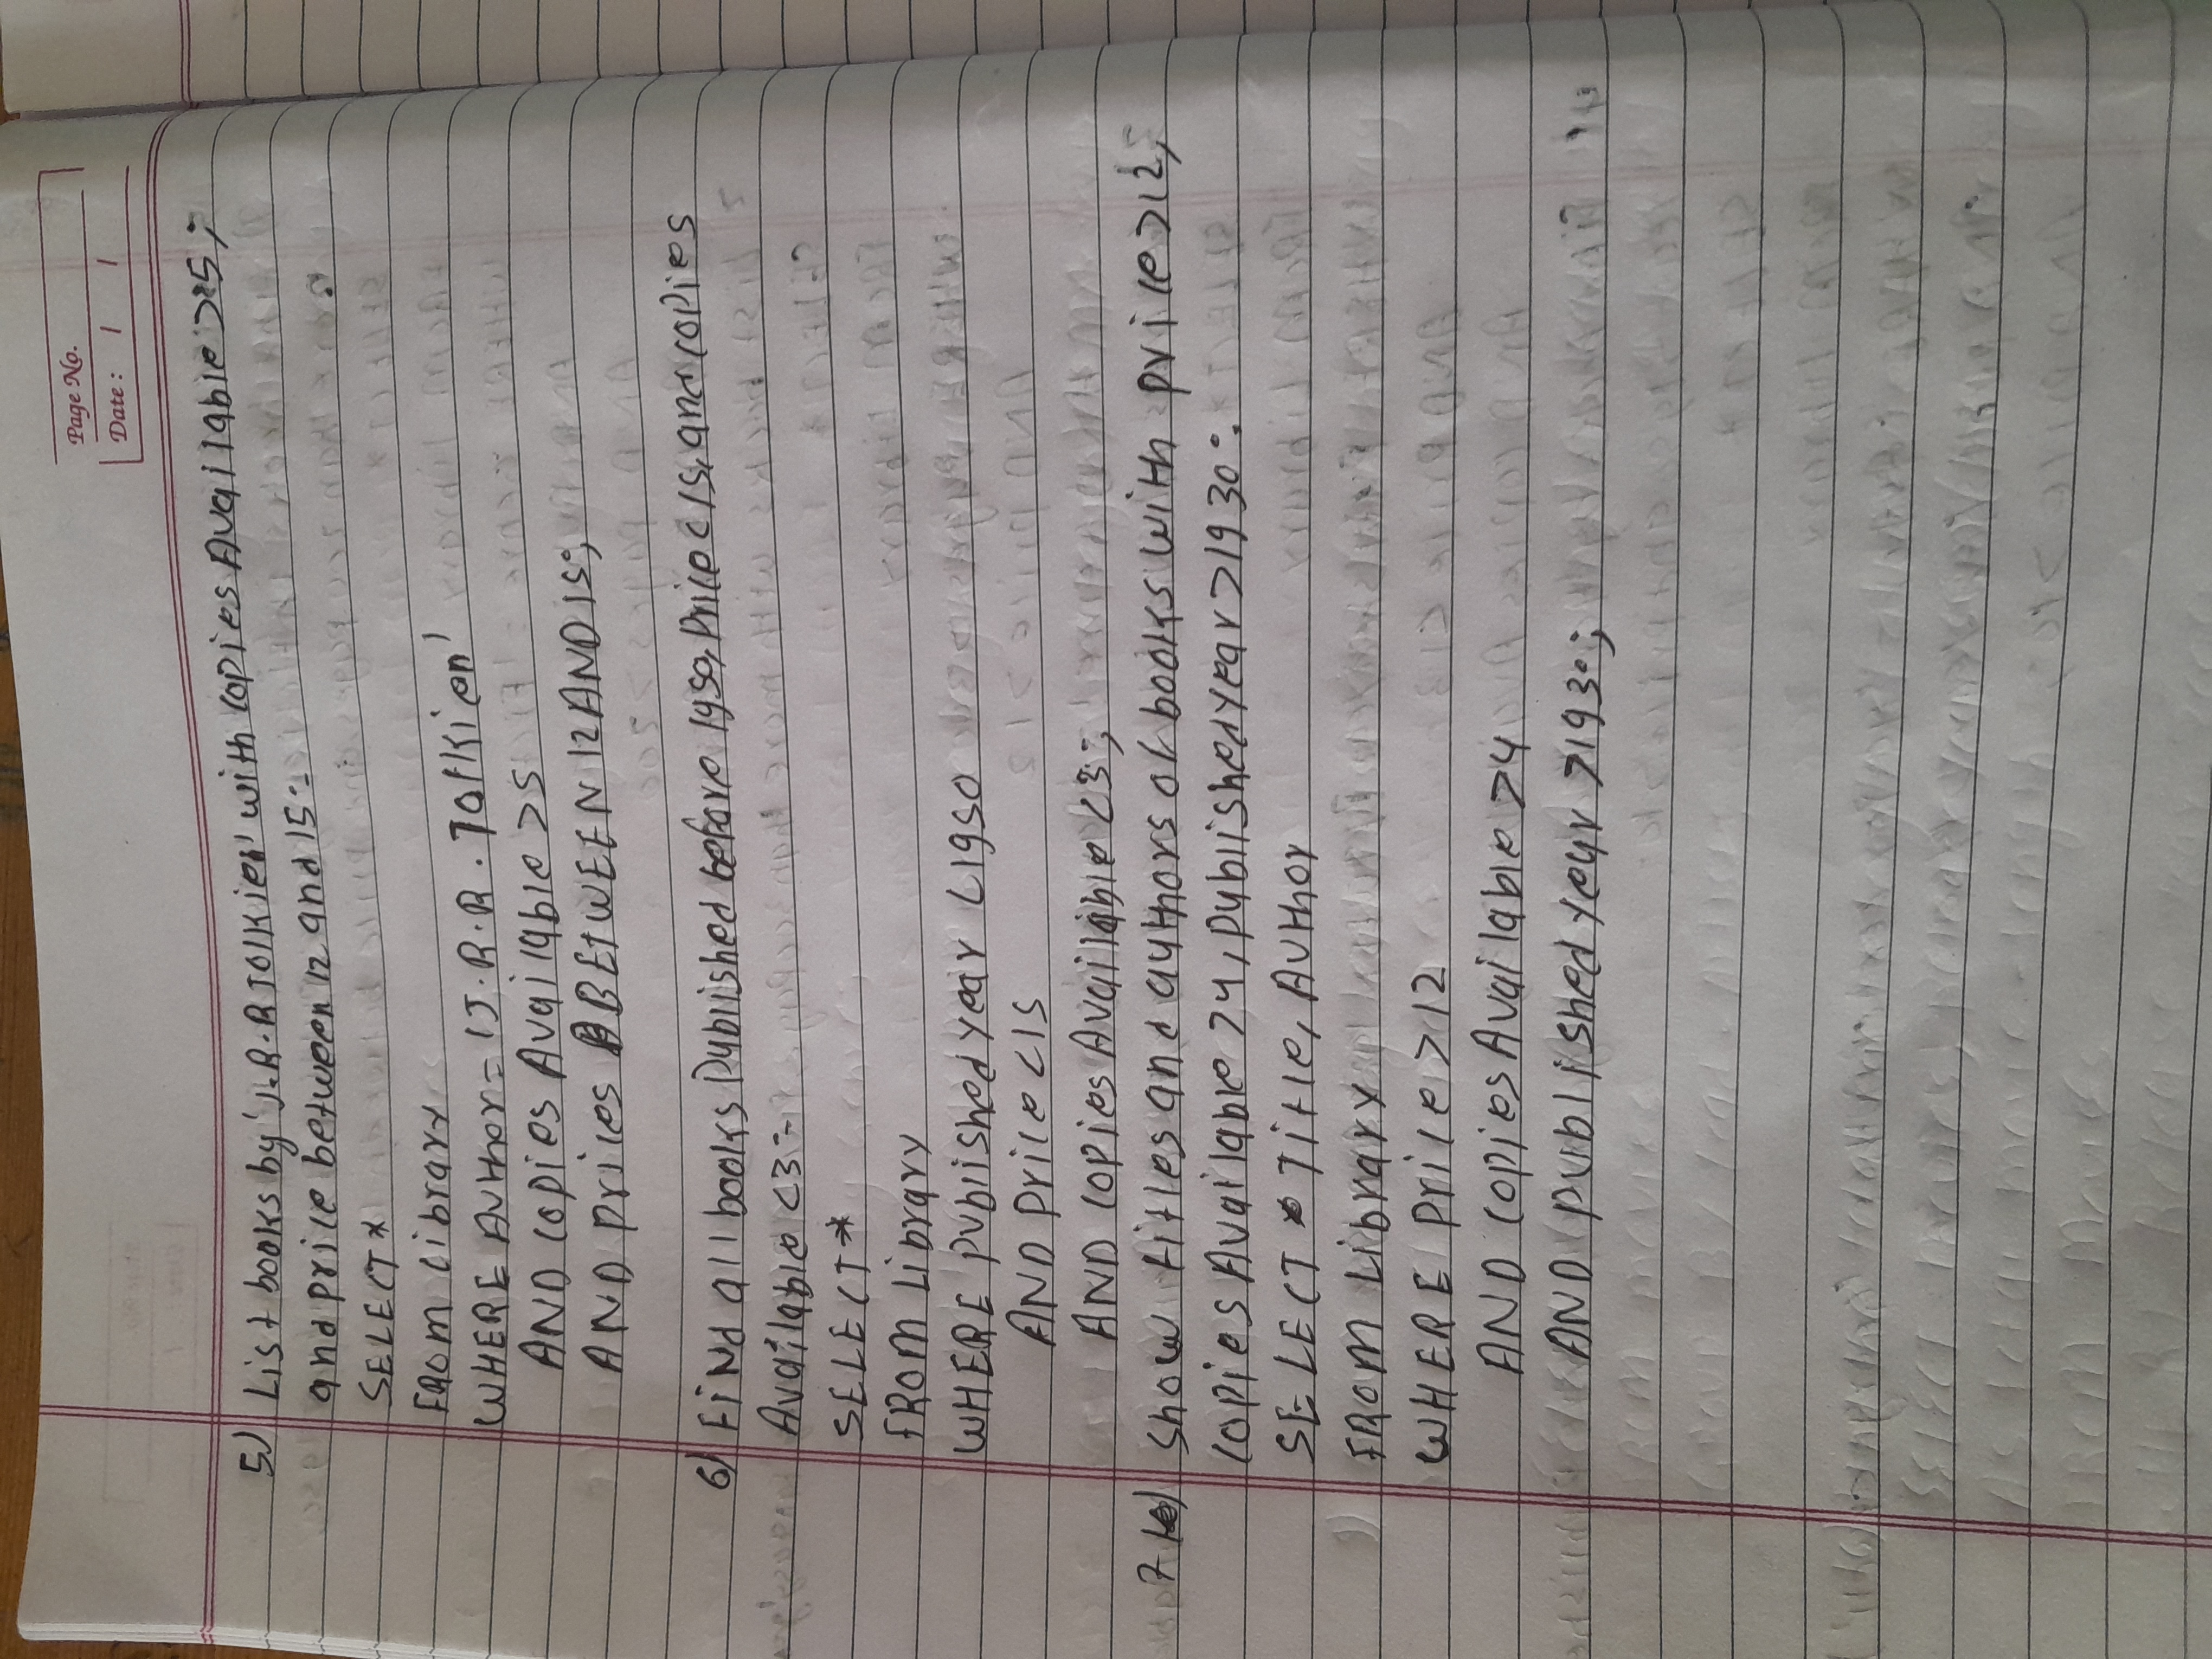 Page No.
Date : / /
5) List books by 'J.R.R Tolkien' with copies Available >5;
and price between 12 and 15:-
SELECT *
FROM Library
WHERE Author = 'J.R.R. Tolkien'
AND copies Available >5
AND prices BETWEEN 12 AND 15;
6) Find all books Published before 1950, Price <15, and copies
Available <3:-
SELECT *
FROM Library
WHERE Published year <1950
AND Price <15
AND copies Available <3;
7) Show titles and authors of books with price >12,
copies Available >4, Published year >1930:
SELECT Title, Author
FROM Library
WHERE Price >12
AND copies Available >4
AND Published year >1930;